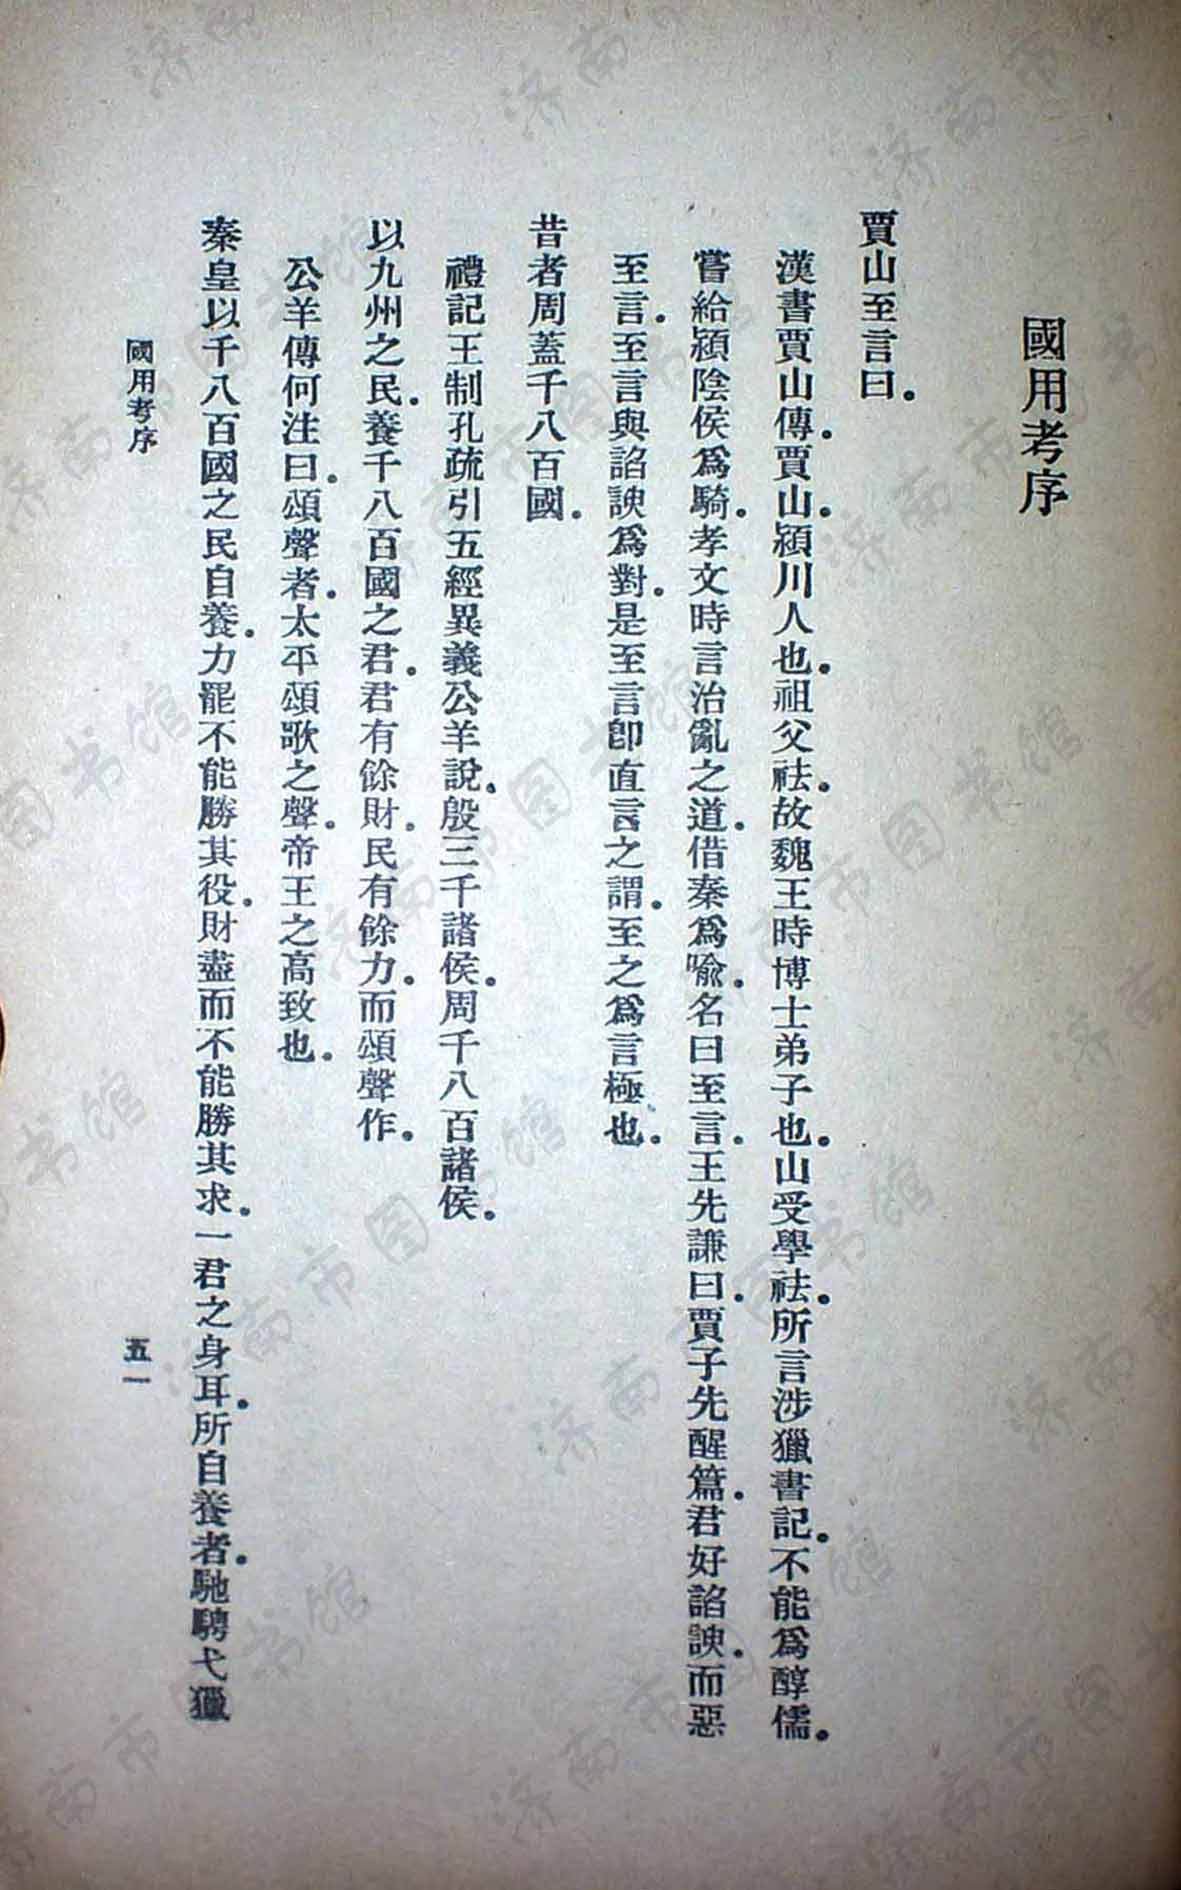 國用考序
賈山至言曰。
漢書賈山傳。賈山。潁川人也。祖父祛。故魏王時博士弟子也。山受學祛。所言涉獵書記。不能爲醇儒。
嘗給潁陰侯爲騎。孝文時言治亂之道。借秦爲喩。名曰至言。王先謙曰。賈子先醒篇。君好諂諛。而惡
至言。至言與諂諛爲對。是至言卽直言之謂。至之爲言極也。
昔者周蓋千八百國。
禮記王制孔疏引五經異義公羊說。殷三千諸侯。周千八百諸侯。
以九州之民。養千八百國之君。君有餘財。民有餘力。而頌聲作。
公羊傳何注曰。頌聲者。太平頌歌之聲。帝王之高致也。
秦皇以千八百國之民自養。力罷不能勝其役。財盡而不能勝其求。一君之身耳。所自養者。馳騁弋獵
國用考序
五一
济南市图书馆